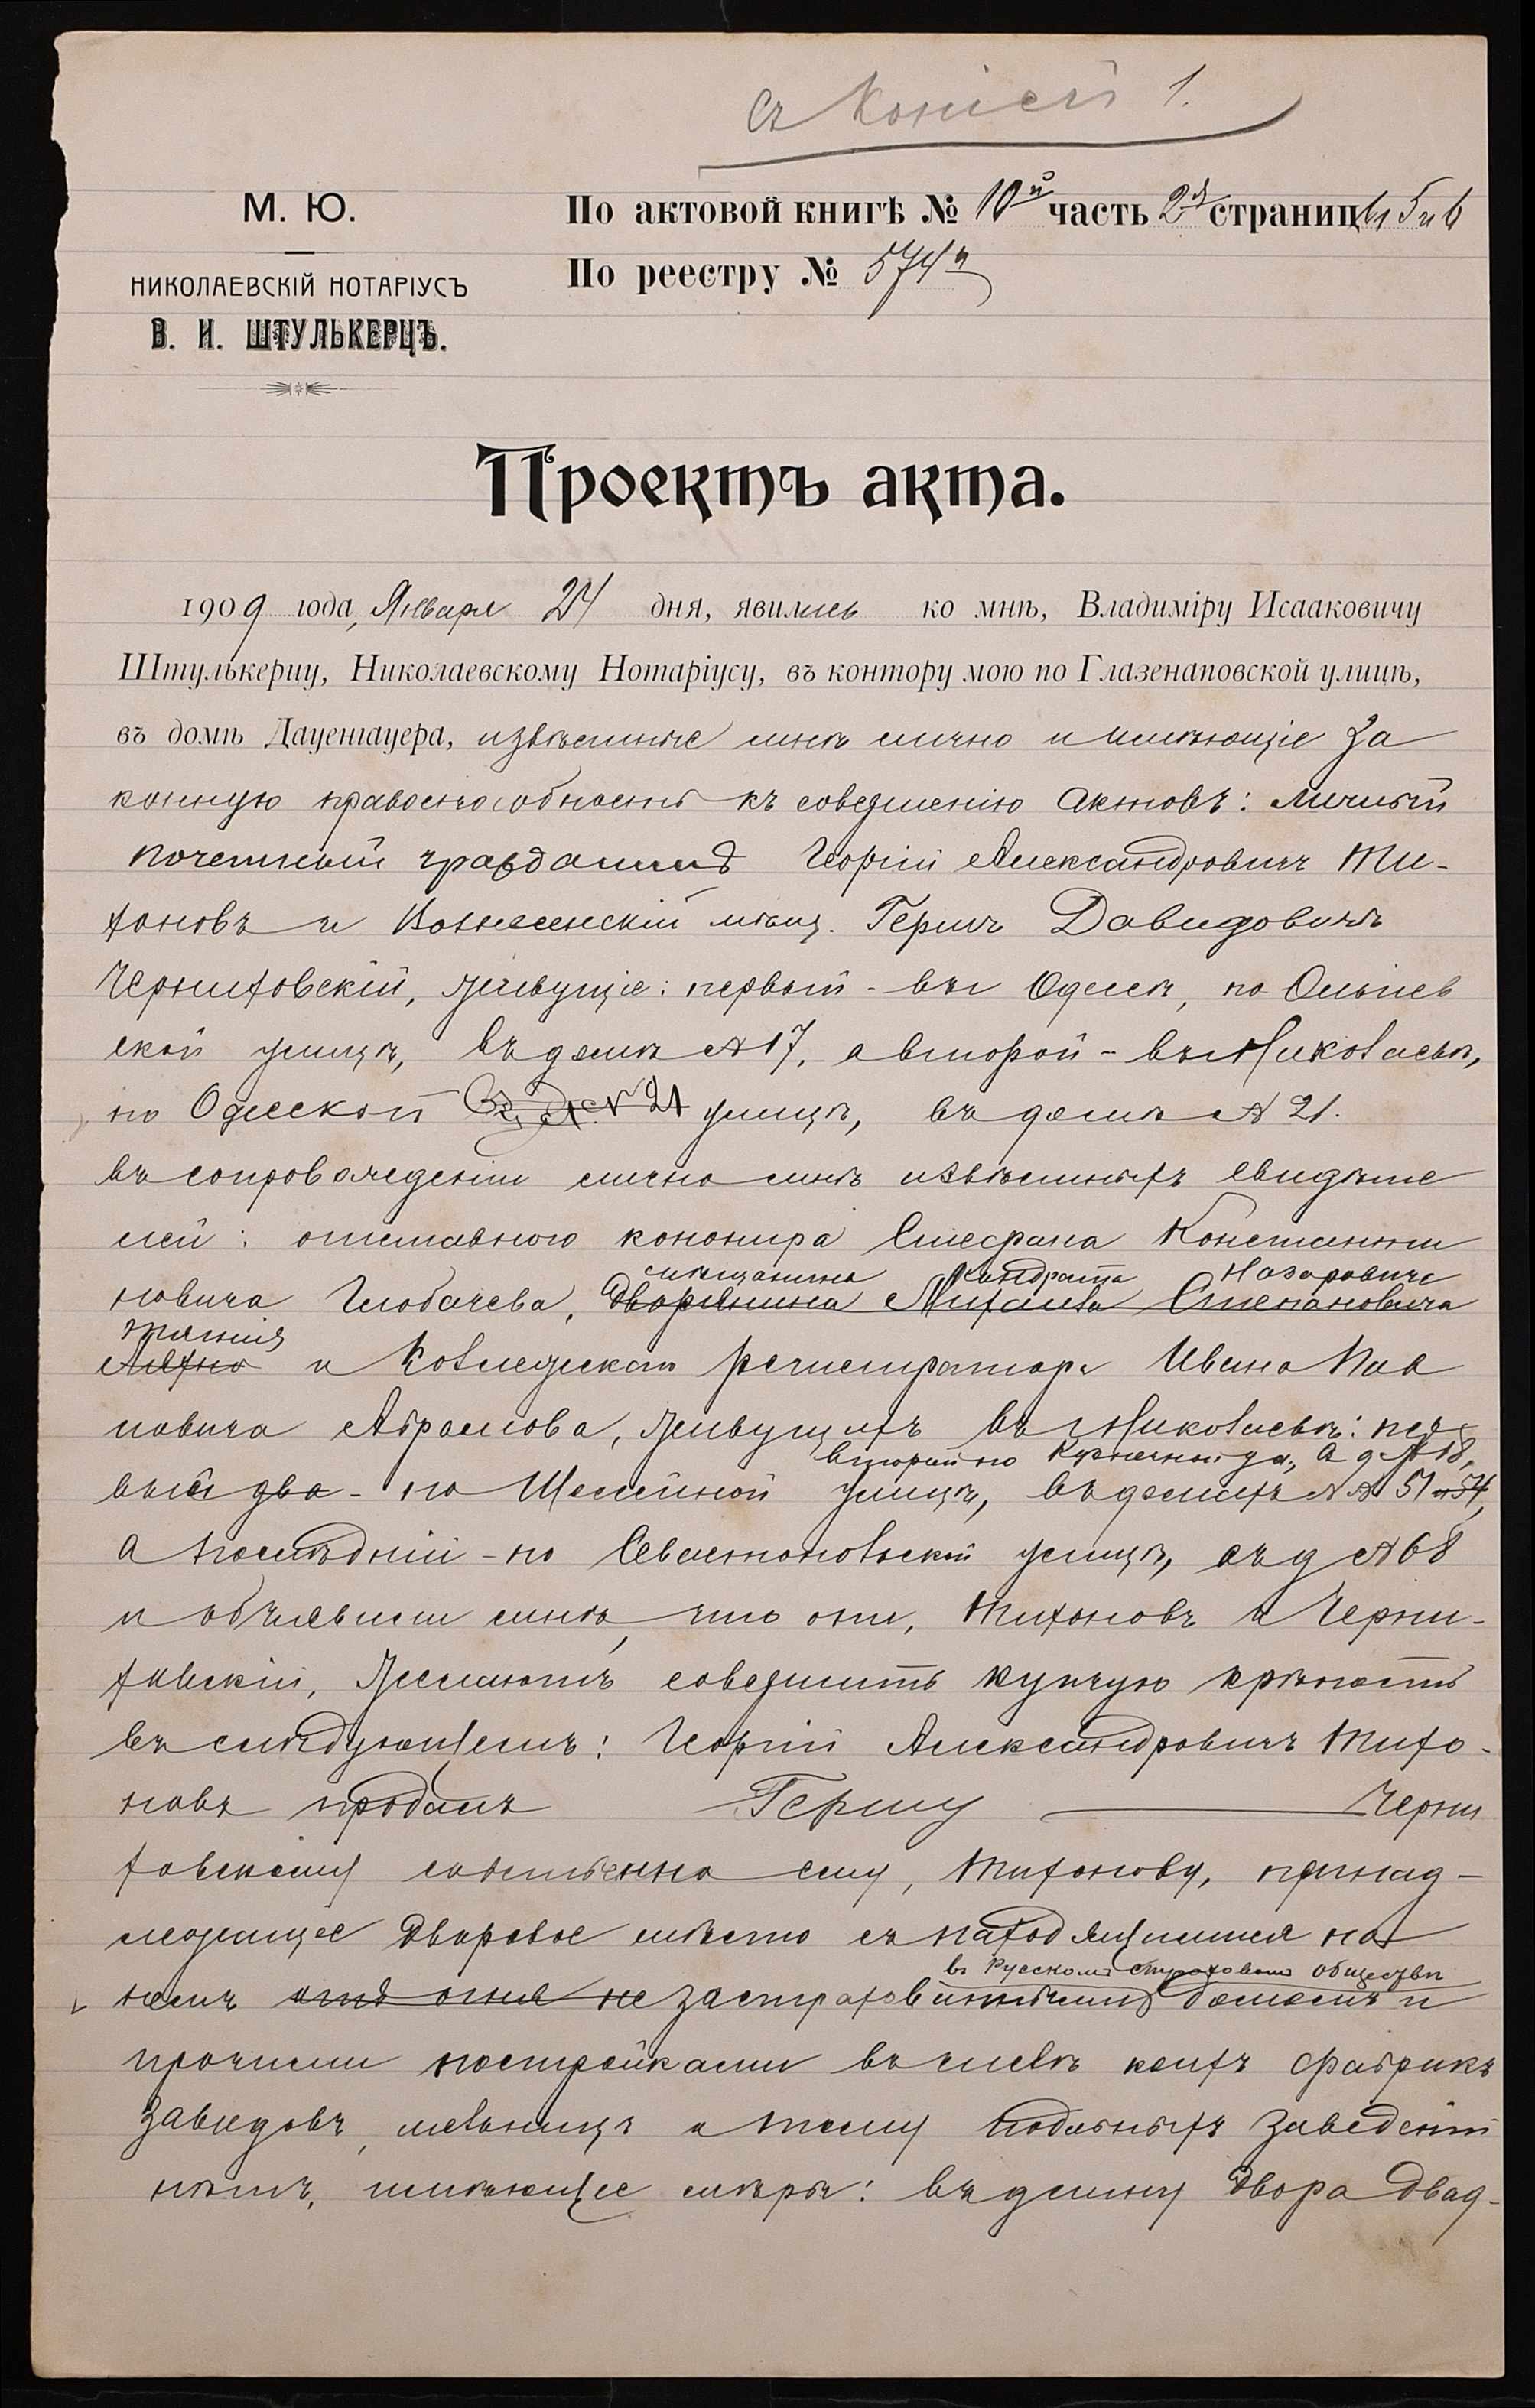 Съ копіей 1.
М. Ю.
НИКОЛАЕВСКІЙ НОТАРІУСЪ
В. И. ШТУЛЬКЕРЦЪ.
По актовой книгѣ № 10й часть 2я страницы 5 и 6
По реестру № 574й
Проектъ акта.
1909 года, Января 24 дня, явились ко мнѣ, Владиміру Исааковичу
Штулькерцу, Николаевскому Нотаріусу, въ контору мою по Глазенаповской улицѣ,
въ домѣ Дауенгауера, извѣстные мнѣ лично и имѣющіе за
конную правоспособность къ совершенію актовъ: личный
почетный гражданинъ Георгій Александровичъ Ти-
хоновъ и Вознесенскій мѣщ. Гершъ Давидовичъ
Черниховскій, живущіе: первый - въ Одессѣ, по Ольгіев
ской улицѣ, въ домѣ № 17, а второй - въ Николаевѣ,
по Одесской въ д. № 21 улицѣ, въ домѣ № 21.
въ сопровожденіи лично мнѣ извѣстныхъ свидѣте
лей: отставного канонира Стефана Константи
мѣщанина Кондрата Назаровича
новича Глобачева, дворянина Михаила Степановича
Махно и Коллежскаго регистратора Ивана Пав
ловича Абрамова, живущихъ въ Николаевѣ: пер
второй по Кузнечной ул., в д. № 18,
вый два - по Шоссейной улицѣ, въ домахъ №№ 51 и 54,
а послѣдній - по Севастопольской улицѣ, въ д № 68
и объявили мнѣ, что они, Тихоновъ и Черни-
ховскій, желаютъ совершить купчую крѣпость
въ слѣдующемъ: Георгій Александровичъ Тихо-
новъ продалъ Гершу Черни
ховскому собственно ему, Тихонову, принад-
лежащее дворовое мѣсто съ находящимися на
въ Русскомъ страховомъ обществѣ
немъ отъ огня не застрахованнымъ домомъ и
прочими постройками въ числѣ коихъ фабрикъ
заводовъ, мельницъ и тому подобныхъ заведеній
нѣтъ, имѣющее мѣры: въ длину двора двад-